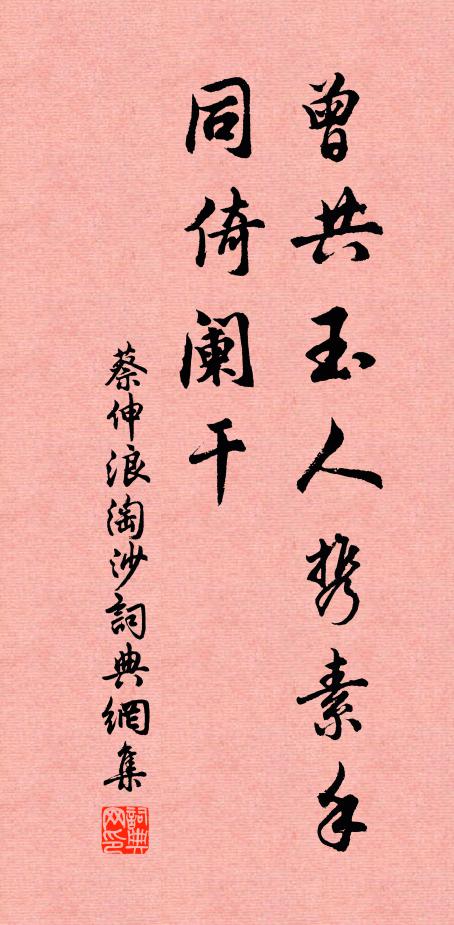 曾共玉人携素手
同倚阑干
蔡伸浪淘沙詞典網集
詞典网印